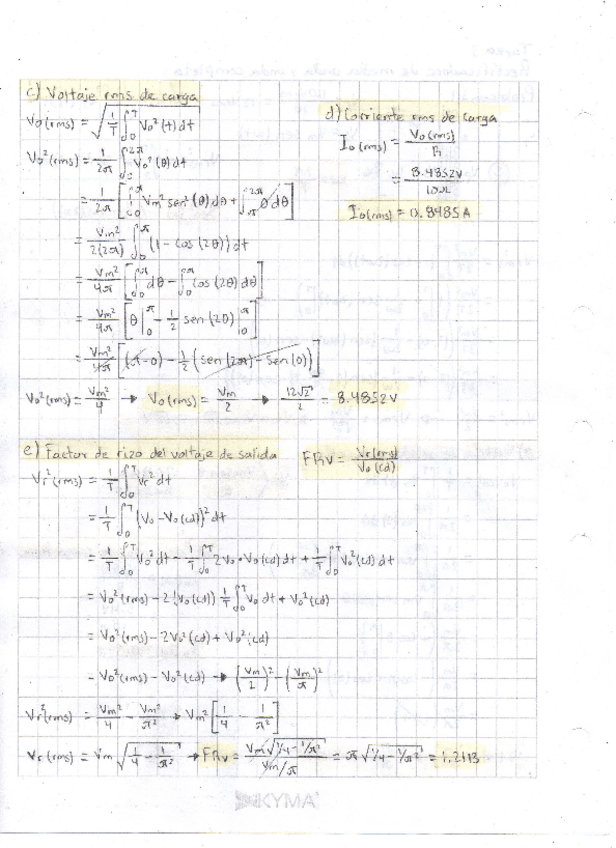 c) Voltaje rms de carga
Vo(rms) = √(1/T ∫₀ᵀ Vo²(t)dt)
Vo²(rms) = 1/2π ∫₀²π Vo²(θ)dθ
= 1/2π [∫₀π Vm² sen²(θ)dθ + ∫π²π 0dθ]
= Vm²/2(2π) ∫₀π (1 - cos(2θ))dt
= Vm²/4π [∫₀π dθ - ∫₀π cos(2θ)dθ]
= Vm²/4π [θ|₀π - 1/2 sen(2θ)|₀π]
= Vm²/4π [(π-0) - 1/2 (sen(2π) - sen(0))]
Vo²(rms) = Vm²/4 → Vo(rms) = Vm/2 → 12√2/2 = 8.4852V
d) Corriente rms de carga
Io(rms) = Vo(rms)/R
= 8.4852V/10Ω
Io(rms) = 0.8485A
e) Factor de rizo del voltaje de salida
FRv = Vr(rms)/Vo(cd)
Vr²(rms) = 1/T ∫₀ᵀ Vr² dt
= 1/T ∫₀ᵀ (Vo - Vo(cd))² dt
= 1/T ∫₀ᵀ Vo² dt - 1/T ∫₀ᵀ 2Vo • Vo(cd) dt + 1/T ∫₀ᵀ Vo²(cd) dt
= Vo²(rms) - 2(Vo(cd)) 1/T ∫₀ᵀ Vo dt + Vo²(cd)
= Vo²(rms) - 2Vo²(cd) + Vo²(cd)
= Vo²(rms) - Vo²(cd) → (Vm/2)² - (Vm/π)²
Vr²(rms) = Vm²/4 - Vm²/π² → Vm² [1/4 - 1/π²]
Vr(rms) = Vm √(1/4 - 1/π²) → FRv = Vm√(1/4 - 1/π²)/(Vm/π) = π √(1/4 - 1/π²) = 1.2113
KYMA